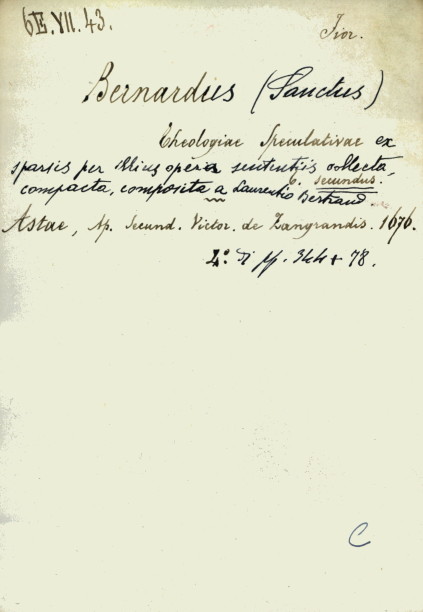 6 E. VII. 43.
Fior.
Bernardus (Sanctus)
Theologiae Speculativae ex
sparsis per illius opera sententiis collecta,
T. secundus.
compacta, composita a Laurentio Bertrand
Astae, Ap. Secund. Victor. de Zangrandis. 1676.
4º. di pp. 344 + 78.
C